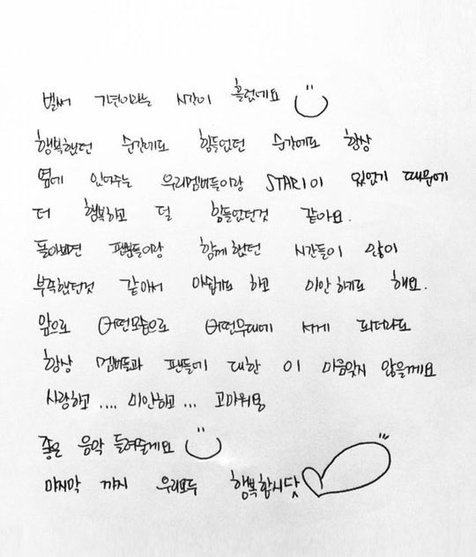 벌써 7년이라는 시간이 흘렀네요
행복했던 순간에도 힘들었던 순간에도 항상
옆에 있어주는 우리멤버들이랑 STAR1이 있었기 때문에
더 행복하고 덜 힘들었던것 같아요.
돌아보면 팬분들이랑 함께했던 시간들이 많이
부족했던것 같아서 아쉽기도 하고 미안하기도 해요.
앞으로 어떤모습으로 어떤무대에 서게 되더라도
항상 멤버들과 팬들에 대한 이 마음잊지 않을게요
사랑하고 .... 미안하고 ... 고마워영
좋은 음악 들려줄게요
마지막 까지 우리모두 행복합시닷